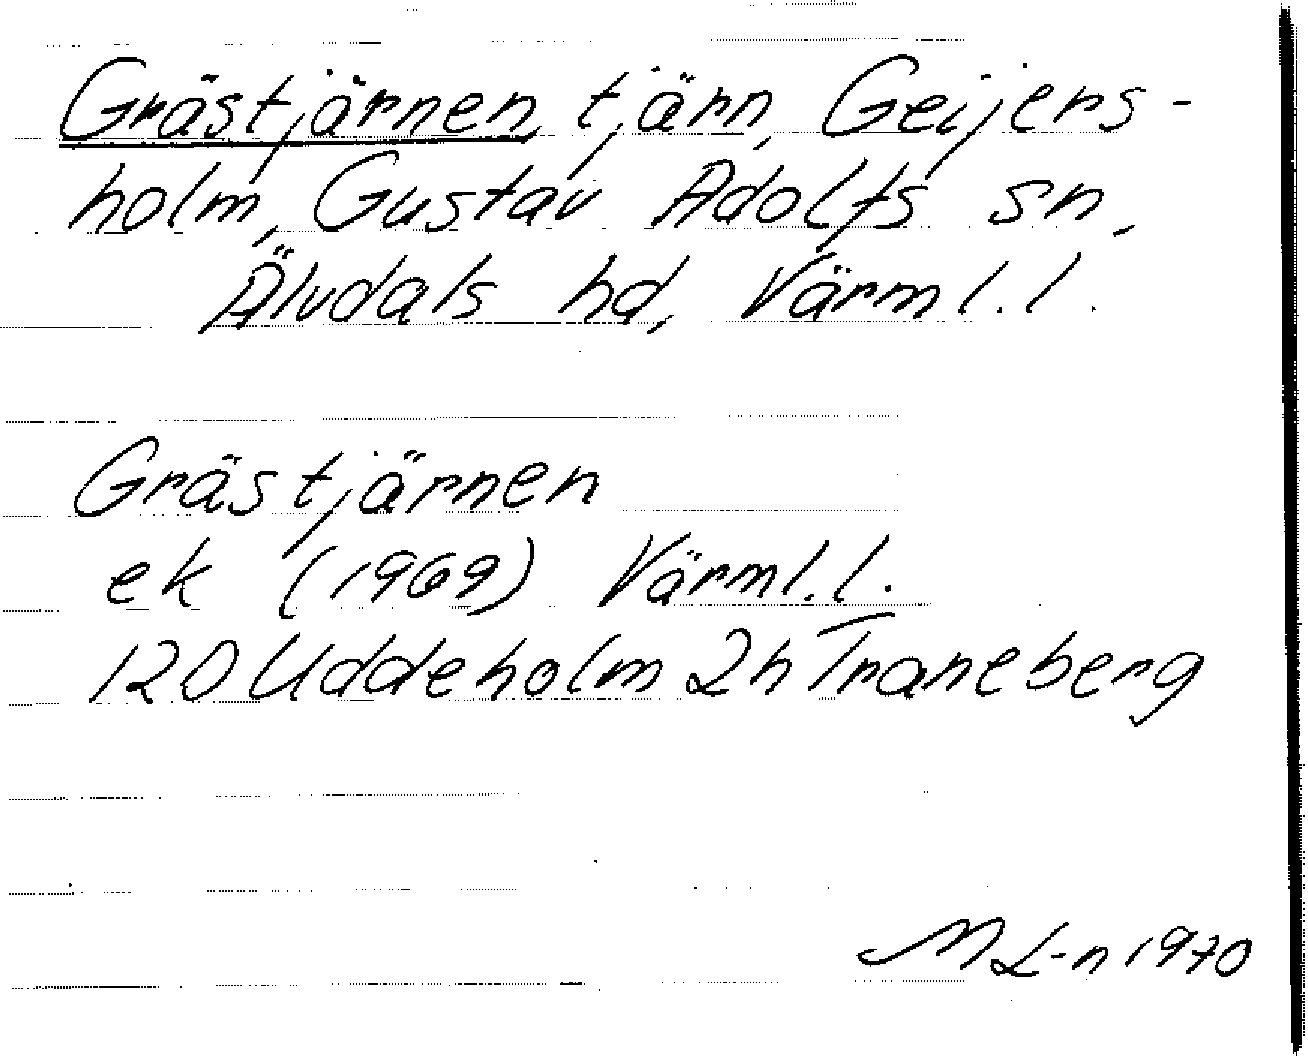 Grästjärnen, tjärn, Geijers-
holm, Gustav Adolfs sn,
Älvdals hd, Värml. l.
Grästjärnen
ek (1969) Värml. l.
120 Uddeholm 2h Traneberg
M L-n 1970